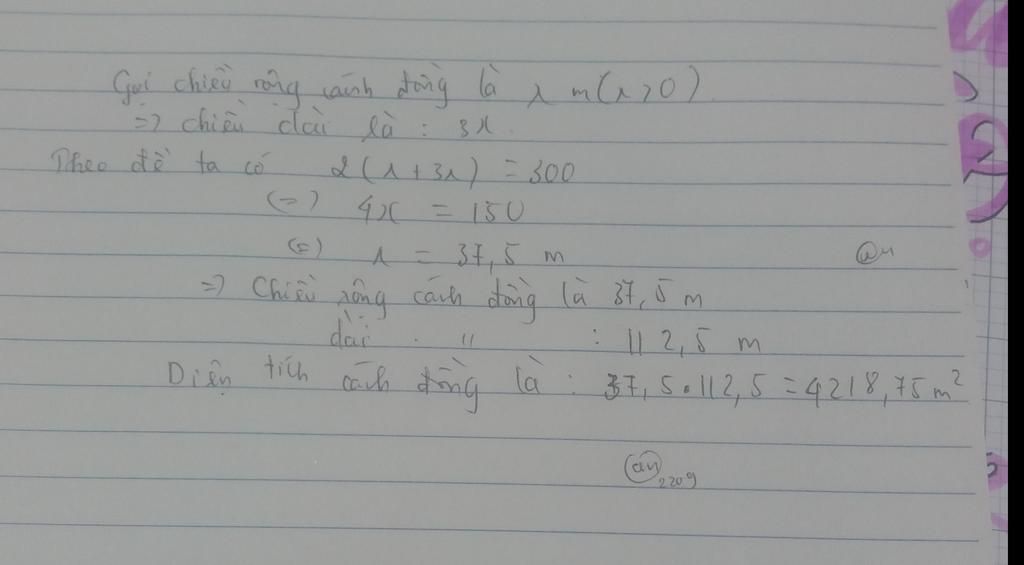 Gọi chiều rộng cánh đồng là x m (x > 0)
=> chiều dài là : 3x.
Theo đề ta có 2(x + 3x) = 300
(=) 4x = 150
(=) x = 37,5 m
@n
=> Chiều rộng cánh đồng là 37,5 m
dài . " : 112,5 m
Diện tích cánh đồng là : 37,5 . 112,5 = 4218,75 m²
an 2209